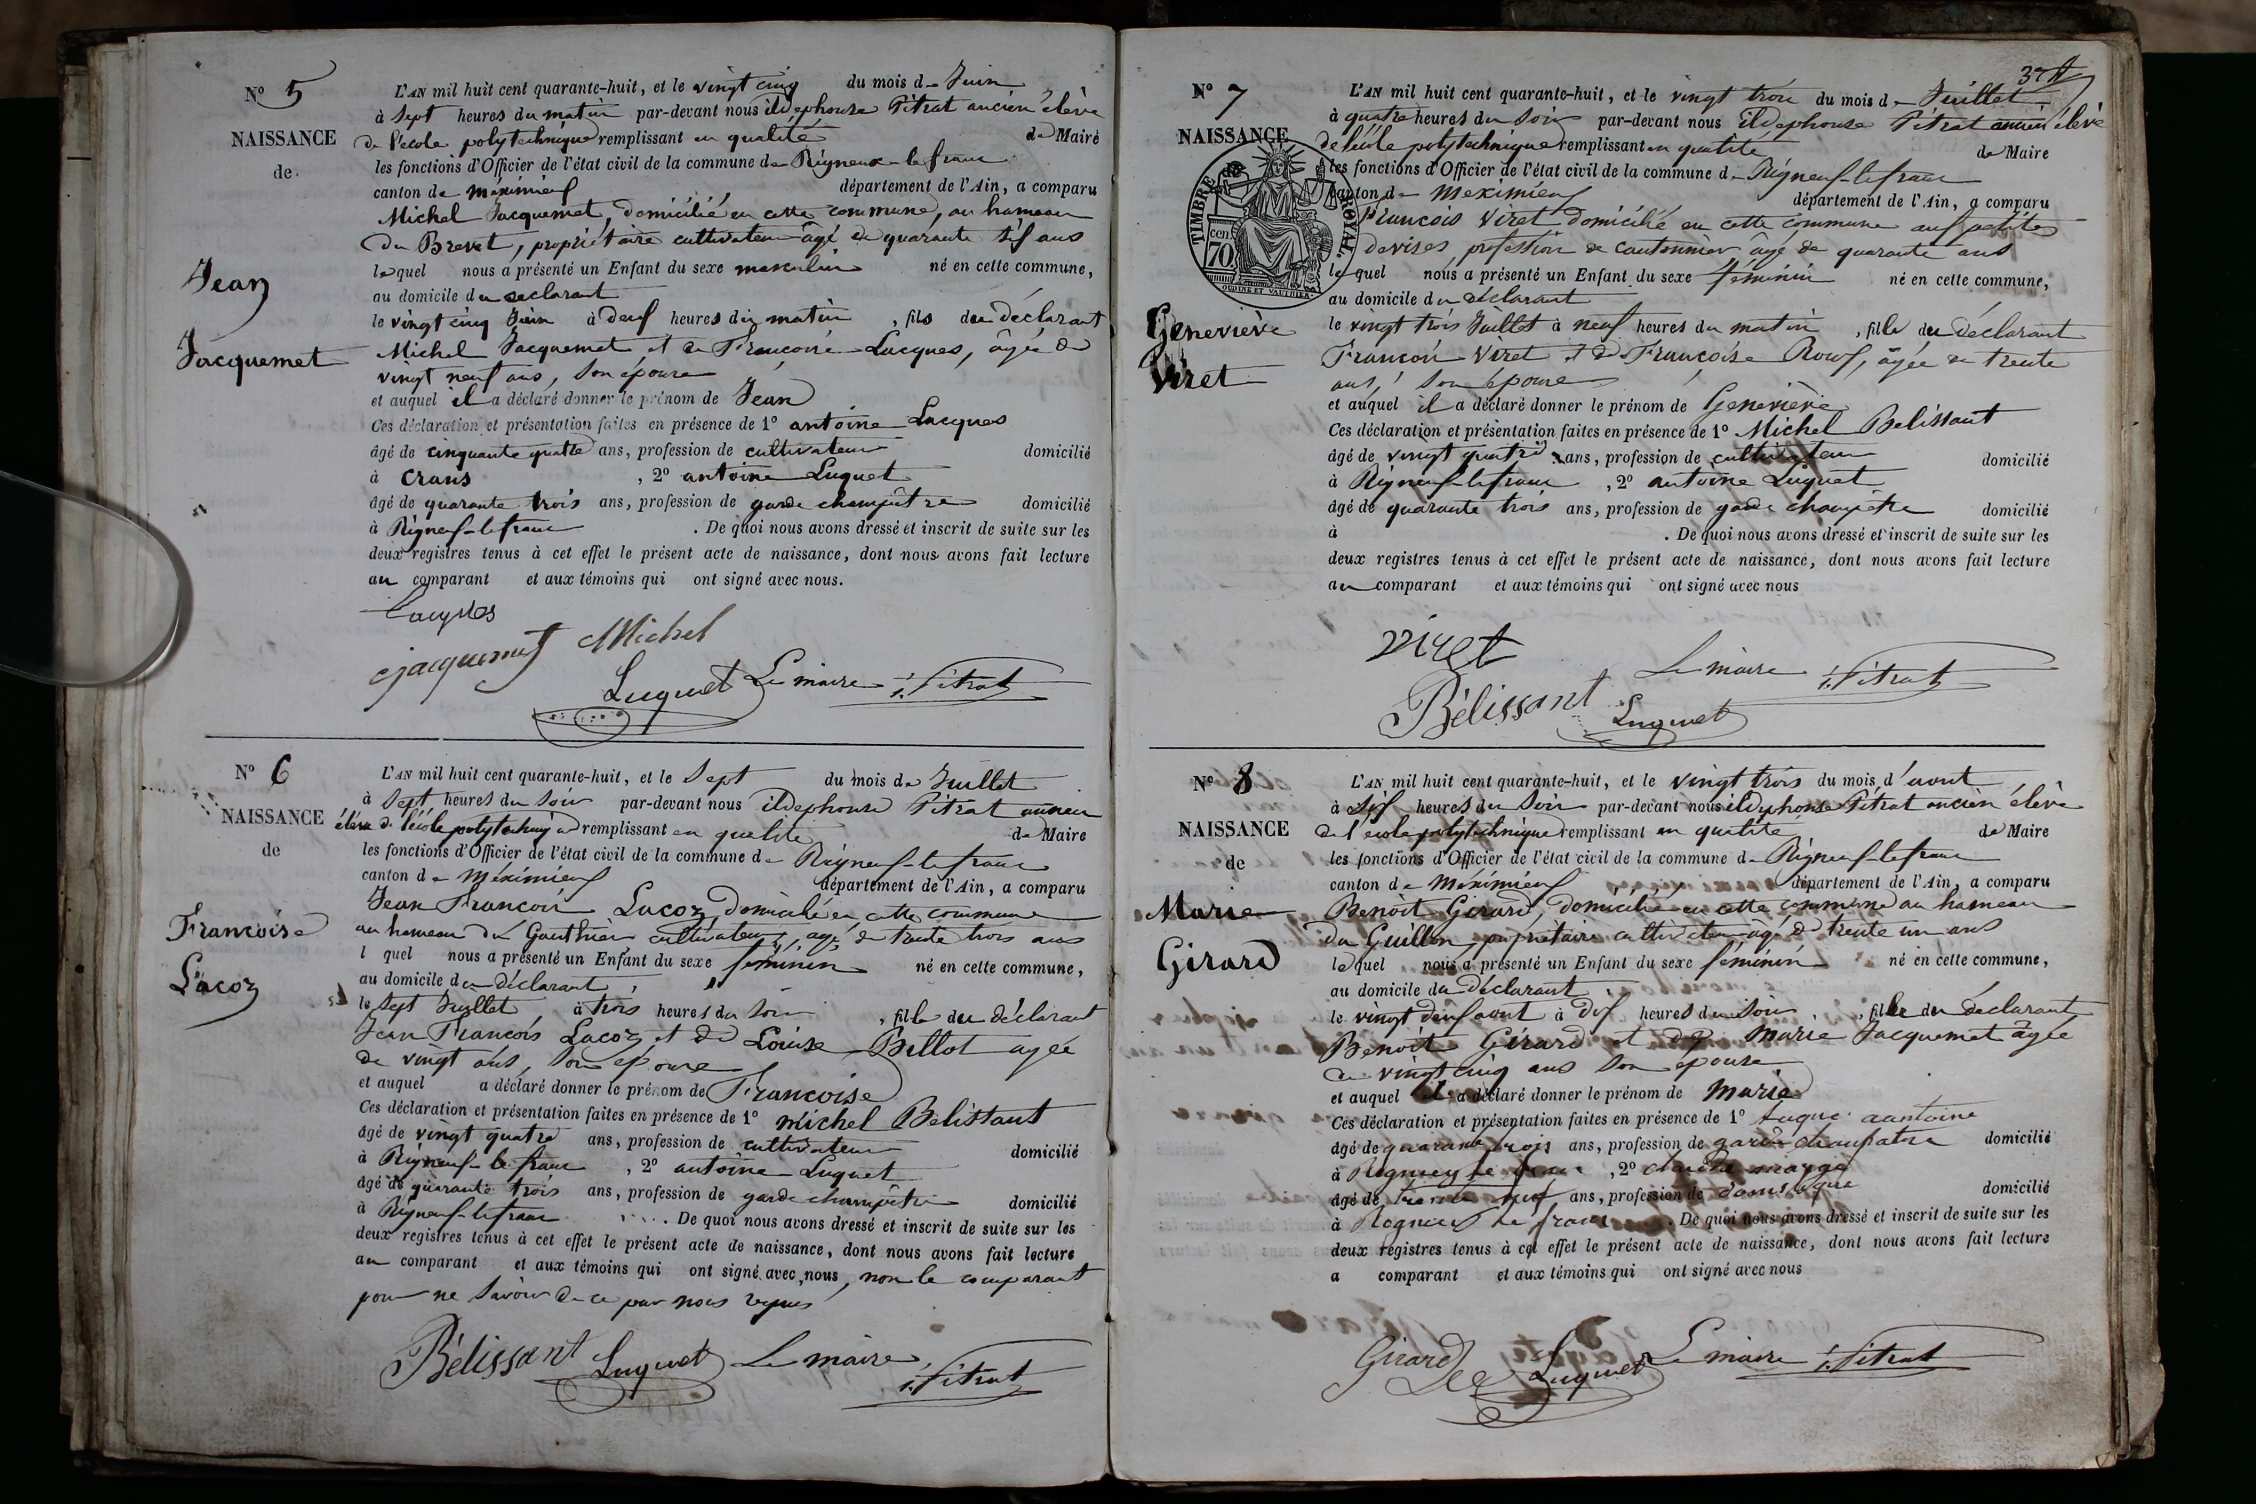 N° 5
NAISSANCE
de
Jean
Jacquemet
L'AN mil huit cent quarante-huit, et le vingt cinq du mois de Juin
à sept heures du matin par-devant nous ildephonse Pitrat ancien élève
de l'école polytechnique remplissant en qualité de Maire
les fonctions d'Officier de l'état civil de la commune de Rigneux-le franc
canton de méximieux département de l'Ain, a comparu
Michel Jacquemet, domicilié en cette commune, au hameau
du Brevet, propriétaire cultivateur âgé de quarante six ans
lequel nous a présenté un Enfant du sexe masculin né en cette commune,
au domicile du déclarant
le vingt cinq Juin à deux heures du matin, fils du déclarant
Michel Jacquemet et de Francoise Lacques, âgée de
vingt neuf ans, son épouse
et auquel il a déclaré donner le prénom de Jean
Ces déclaration et présentation faites en présence de 1° antoine Lacques
âgé de cinquante quatre ans, profession de cultivateur domicilié
à Crans, 2° antoine Luquet
âgé de quarante trois ans, profession de garde champêtre domicilié
à Rigneux-le franc. De quoi nous avons dressé et inscrit de suite sur les
deux registres tenus à cet effet le présent acte de naissance, dont nous avons fait lecture
au comparant et aux témoins qui ont signé avec nous.
Lacques
jacquemet Michel
Luquet Le maire i. Pitrat
N° 6
NAISSANCE
de
Francoise
Lacoz
L'AN mil huit cent quarante-huit, et le sept du mois de Juillet
à sept heures du soir par-devant nous ildephonse Pitrat ancien
élève de l'école polytechnique remplissant en qualité de Maire
les fonctions d'Officier de l'état civil de la commune de Rigneux-le franc
canton de méximieux département de l'Ain, a comparu
Jean Francois Lacoz, domicilié en cette commune
au hameau du Gauthier cultivateur, agé de trente trois ans
l quel nous a présenté un Enfant du sexe féminin né en cette commune,
au domicile du déclarant,
le sept Juillet à trois heures du soir, fille du déclarant
Jean Francois Lacoz et de Louise Billot agée
de vingt ans, son épouse
et auquel a déclaré donner le prénom de Francoise
Ces déclaration et présentation faites en présence de 1° michel Belissant
âgé de vingt quatre ans, profession de cultivateur domicilié
à Rigneux-le franc, 2° antoine Luquet
âgé de quarante trois ans, profession de garde champêtre domicilié
à Rigneux-le franc. De quoi nous avons dressé et inscrit de suite sur les
deux registres tenus à cet effet le présent acte de naissance, dont nous avons fait lecture
au comparant et aux témoins qui ont signé avec nous, non le comparant
pour ne savoir de ce par nous requis
Bélissant Luquet Le maire
i. Pitrat
37
N° 7
NAISSANCE
TIMBRE ROYAL.
70 cen.
OUDINÉ ET VAUTHIER.
Geneviève
Viret
L'AN mil huit cent quarante-huit, et le vingt trois du mois de Juillet
à quatre heures du soir par-devant nous ildephonse Pitrat ancien élève
de l'école polytechnique remplissant en qualité de Maire
les fonctions d'Officier de l'état civil de la commune de Rigneux-le franc
canton de Meximieux département de l'Ain, a comparu
Francois Viret domicilié en cette commune aux petites
devises profession de cantonnier agé de quarante ans
lequel nous a présenté un Enfant du sexe féminin né en cette commune,
au domicile du déclarant
le vingt trois Juillet à neuf heures du matin, fille du déclarant
Francois Viret et de Francoise Roux, âgée de trente
ans, son épouse
et auquel il a déclaré donner le prénom de Geneviève
Ces déclaration et présentation faites en présence de 1° Michel Belissant
âgé de vingt quatre ans, profession de cultivateur domicilié
à Rigneux-le franc, 2° antoine Luquet
âgé de quarante trois ans, profession de garde champêtre domicilié
à . De quoi nous avons dressé et inscrit de suite sur les
deux registres tenus à cet effet le présent acte de naissance, dont nous avons fait lecture
au comparant et aux témoins qui ont signé avec nous
viret
Le maire i. Pitrat
Bélissant Luquet
N° 8
NAISSANCE
de
Marie
Girard
L'AN mil huit cent quarante-huit, et le vingt trois du mois d'aout
à six heures du soir par-devant nous ildephonse Pitrat ancien élève
de l'école polytechnique remplissant en qualité de Maire
les fonctions d'Officier de l'état civil de la commune de Rigneux-le franc
canton de Méximieux département de l'Ain, a comparu
Benoit Girard, domicilié en cette commune au hameau
du Guillon propriétaire cultivateur agé de trente un ans
lequel nous a présenté un Enfant du sexe féminin né en cette commune,
au domicile du déclarant
le vingt deux aout à dix heures du soir, fille du déclarant
Benoit Girard et de Marie Jacquemet âgée
de vingt cinq ans son épouse
et auquel il a déclaré donner le prénom de Marie
Ces déclaration et présentation faites en présence de 1° Luque aantoine
âgé de quarante trois ans, profession de garde domicilié
à, 2°
âgé de ans, profession de domicilié
à. De quoi nous avons dressé et inscrit de suite sur les
deux registres tenus à cet effet le présent acte de naissance, dont nous avons fait lecture
a comparant et aux témoins qui ont signé avec nous
Girard Luquet Le maire i. Pitrat